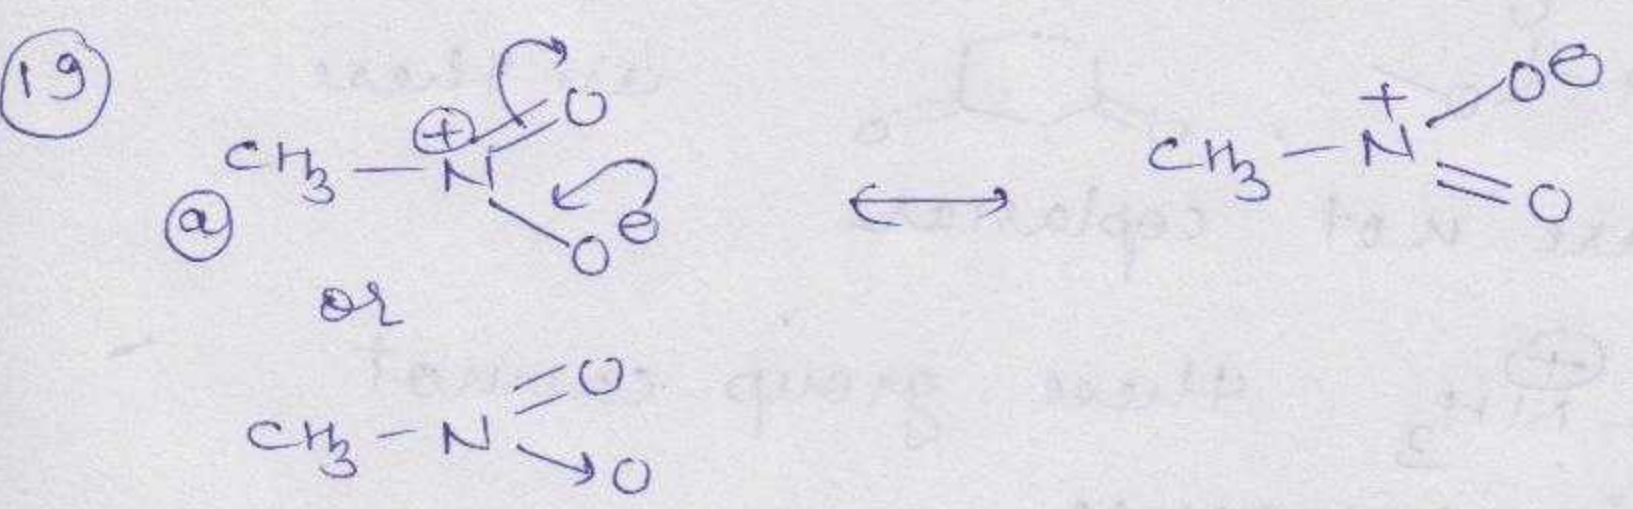 19
CH3 — N⊕ (=O) — O⊖ ⟷ CH3 — N+ (— O⊖) = O
a
or
CH3 – N (=O) → O